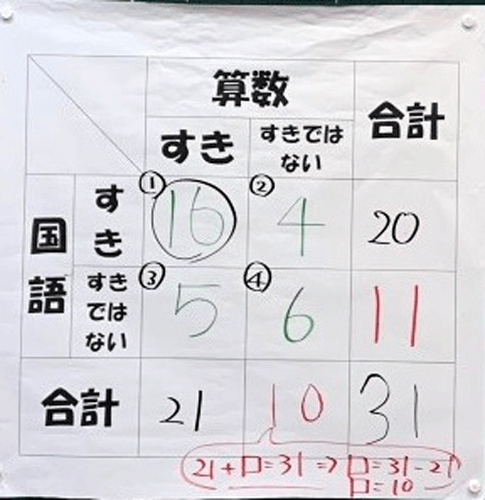 算数
合計
すき
すきでは
ない
国語
すき
① 16
② 4
20
すき
では
ない
③ 5
④ 6
11
合計
21
10
31
21+□=31⇒□=31-21
□=10